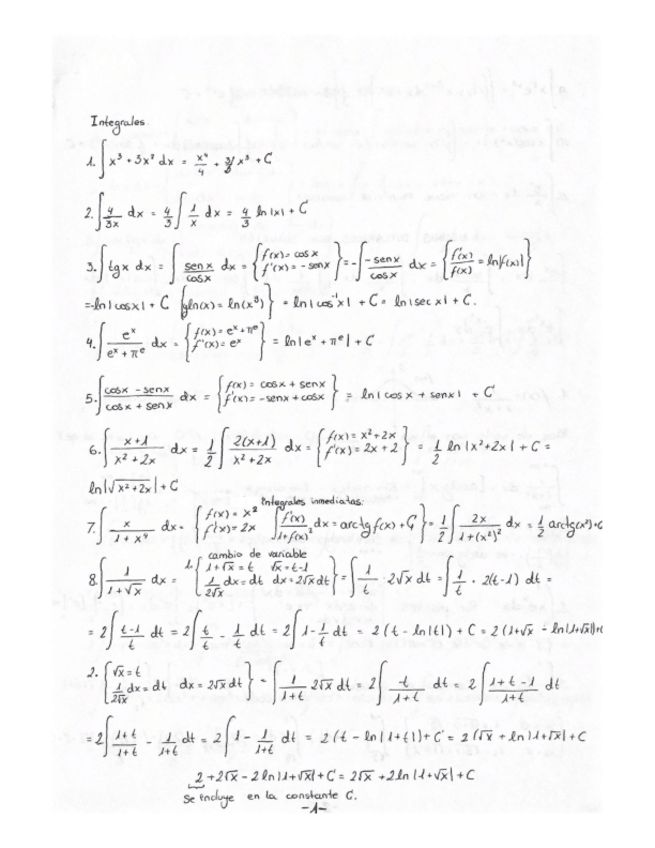 Integrales.
1. ∫ x³ + 3x² dx = x⁴/4 + 3/3 x³ + C
2. ∫ 4/3x dx = 4/3 ∫ 1/x dx = 4/3 ln |x| + C
3. ∫ tgx dx = ∫ senx/cosx dx = { f(x) = cosx f'(x) = -senx } = -∫ -senx/cosx dx = { f'(x)/f(x) = ln|f(x)| }
= -ln|cosx| + C { yln(x) = ln(x^y) } = ln|cos⁻¹x| + C = ln|secx| + C.
4. ∫ eˣ/(eˣ + πᵉ) dx = { f(x) = eˣ + πᵉ f'(x) = eˣ } = ln|eˣ + πᵉ| + C
5. ∫ (cosx - senx)/(cosx + senx) dx = { f(x) = cosx + senx f'(x) = -senx + cosx } = ln|cosx + senx| + C
6. ∫ (x+1)/(x² + 2x) dx = 1/2 ∫ 2(x+1)/(x² + 2x) dx = { f(x) = x² + 2x f'(x) = 2x + 2 } = 1/2 ln |x² + 2x| + C =
ln|√(x² + 2x)| + C
Integrales inmediatas:
7. ∫ x/(1 + x⁴) dx = { f(x) = x² f'(x) = 2x ∫ f'(x)/(1+f(x)²) dx = arctg f(x) + C } = 1/2 ∫ 2x/(1+(x²)²) dx = 1/2 arctg(x²)+C
cambio de variable
8. ∫ 1/(1+√x) dx = 1. { 1+√x = t √x = t-1 1/(2√x) dx = dt dx = 2√x dt } = ∫ 1/t · 2√x dt = ∫ 1/t · 2(t-1) dt =
= 2 ∫ (t-1)/t dt = 2 ∫ t/t - 1/t dt = 2 ∫ 1 - 1/t dt = 2 (t - ln|t|) + C = 2 (1+√x - ln|1+√x|)+C
2. { √x = t 1/(2√x) dx = dt dx = 2√x dt } = ∫ 1/(1+t) 2√x dt = 2 ∫ t/(1+t) dt = 2 ∫ (1+t-1)/(1+t) dt
= 2 ∫ (1+t)/(1+t) - 1/(1+t) dt = 2 ∫ 1 - 1/(1+t) dt = 2 (t - ln|1+t|) + C = 2(√x + ln|1+√x| + C
2 + 2√x - 2ln|1+√x| + C = 2√x + 2ln|1+√x| + C
se incluye en la constante C.
-1-